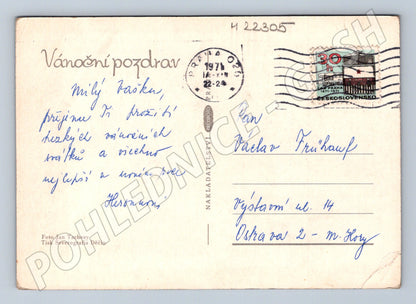 H 22305
Vánoční pozdrav
PRAHA 025
1971
22-24
30
ČESKOSLOVENSKO
Milý Vašku,
přijmi Ti prožití
hezkých vánočních
svátků a všechno
nejlepší v novém roce
Pan
Václav Frühauf
Výstavní ul. 14
Ostrava 2 - m. Hory
NAKLADATELSTVÍ
Foto Jan
Tisk Severografia Děčín
POHLEDNICE - CASH